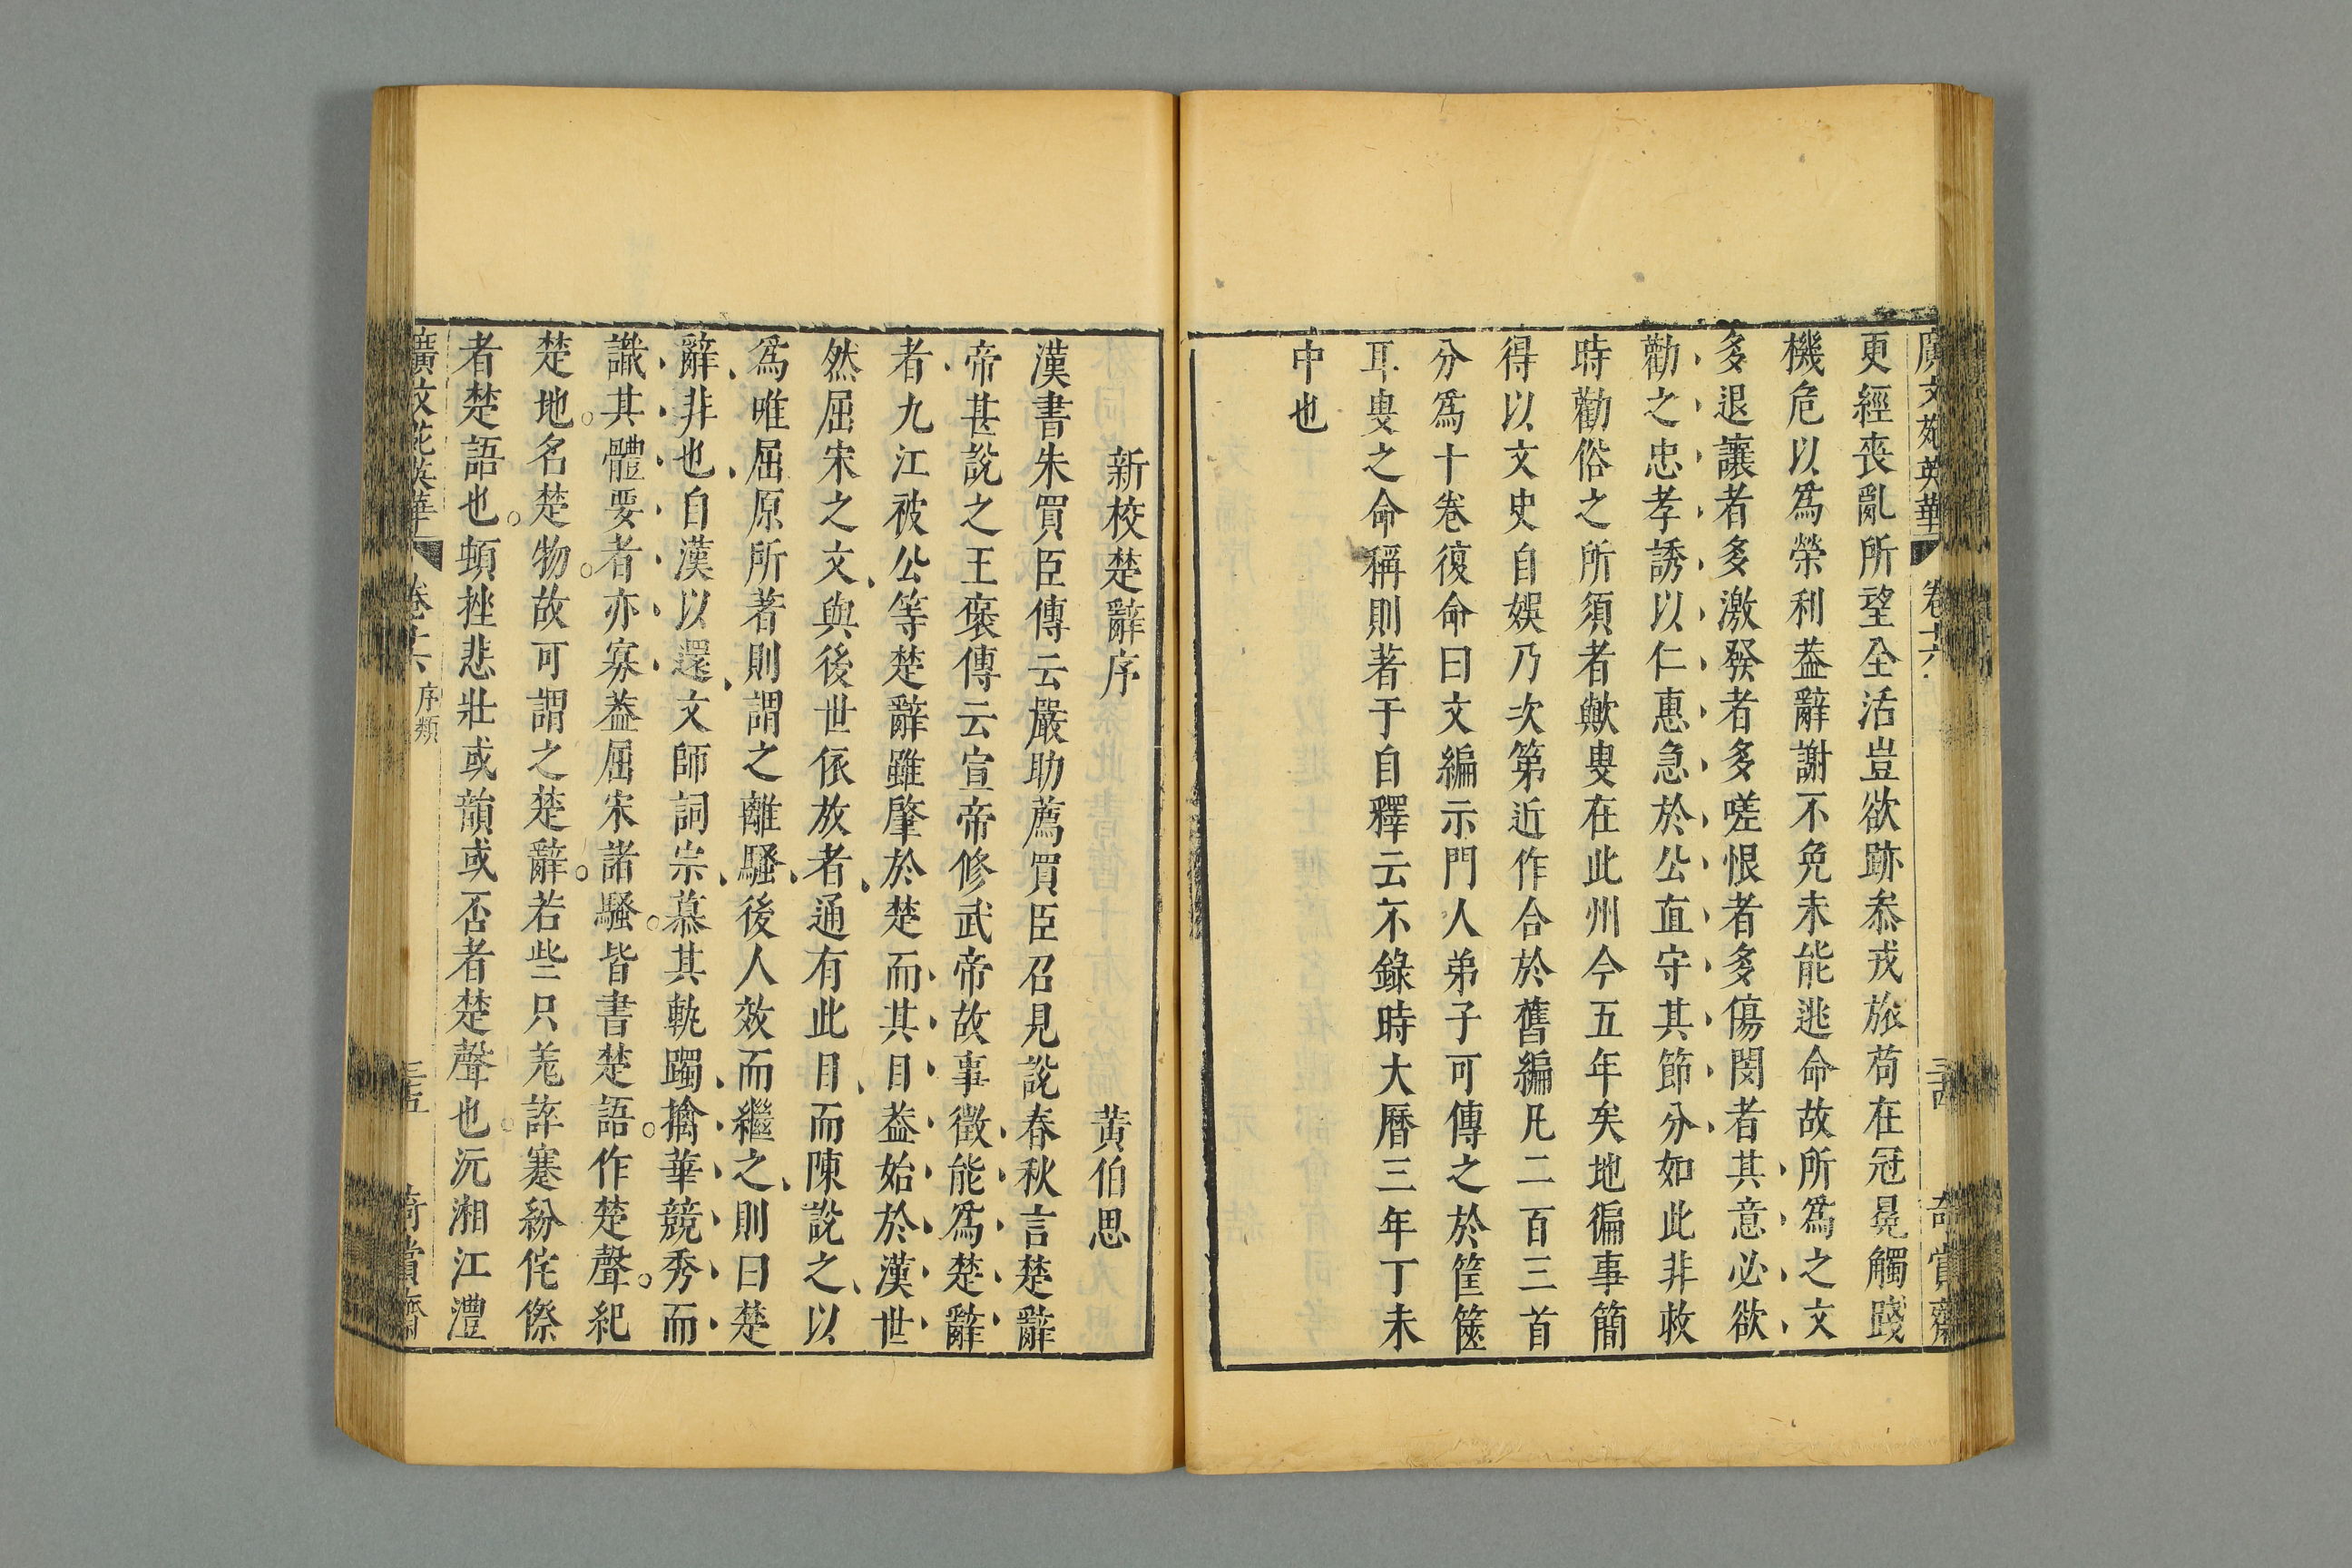 廣文苑英華 卷十六 三十四 奇賞齋
更經喪亂所望全活豈欲跡叅戎旅苟在冠冕觸踐
機危以爲榮利葢辭謝不免未能逃命故所爲之文
多退讓者多激發者多嗟恨者多傷閔者其意必欲
勸之忠孝誘以仁惠急於公直守其節分如此非救
時勸俗之所須者歟叟在此州今五年矣地偏事簡
得以文史自娛乃次第近作合於舊編凡二百三首
分爲十卷復命曰文編示門人弟子可傳之於筐篋
耳叟之命稱則著于自釋云不錄時大曆三年丁未
中也
新校楚辭序 黃伯思
漢書朱買臣傳云嚴助薦買臣召見說春秋言楚辭
帝甚說之王褒傳云宣帝修武帝故事徵能爲楚辭
者九江被公等楚辭雖肇於楚而其目葢始於漢世
然屈宋之文與後世依放者通有此目而陳說之以
爲唯屈原所著則謂之離騷後人效而繼之則曰楚
辭非也自漢以還文師詞宗慕其軌躅摛華競秀而
識其體要者亦寡葢屈宋諸騷皆書楚語作楚聲紀
楚地名楚物故可謂之楚辭若些只羌誶蹇紛侘傺
者楚語也頓挫悲壯或韻或否者楚聲也沅湘江澧
廣文苑英華 卷十六 序類 三十五 奇賞齋